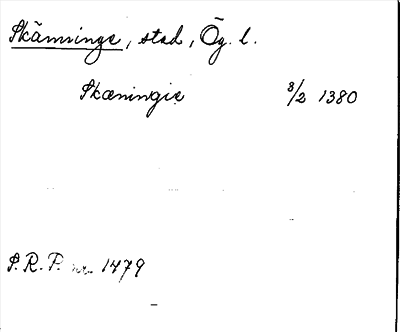 Skänninge, stad, Ög. l.
Skæningie 8/2 1380
S.R.P. nr 1479